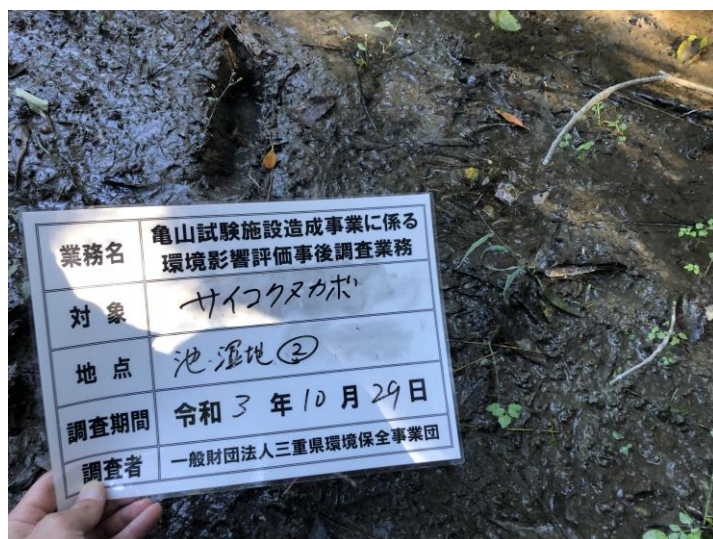 業務名 亀山試験施設造成事業に係る
環境影響評価事後調査業務
対象 サイコクヌカボ
地点 池・湿地②
調査期間 令和3年10月29日
調査者 一般財団法人三重県環境保全事業団